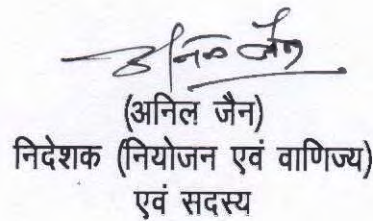 अनिल जैन
(अनिल जैन)
निदेशक (नियोजन एवं वाणिज्य)
एवं सदस्य